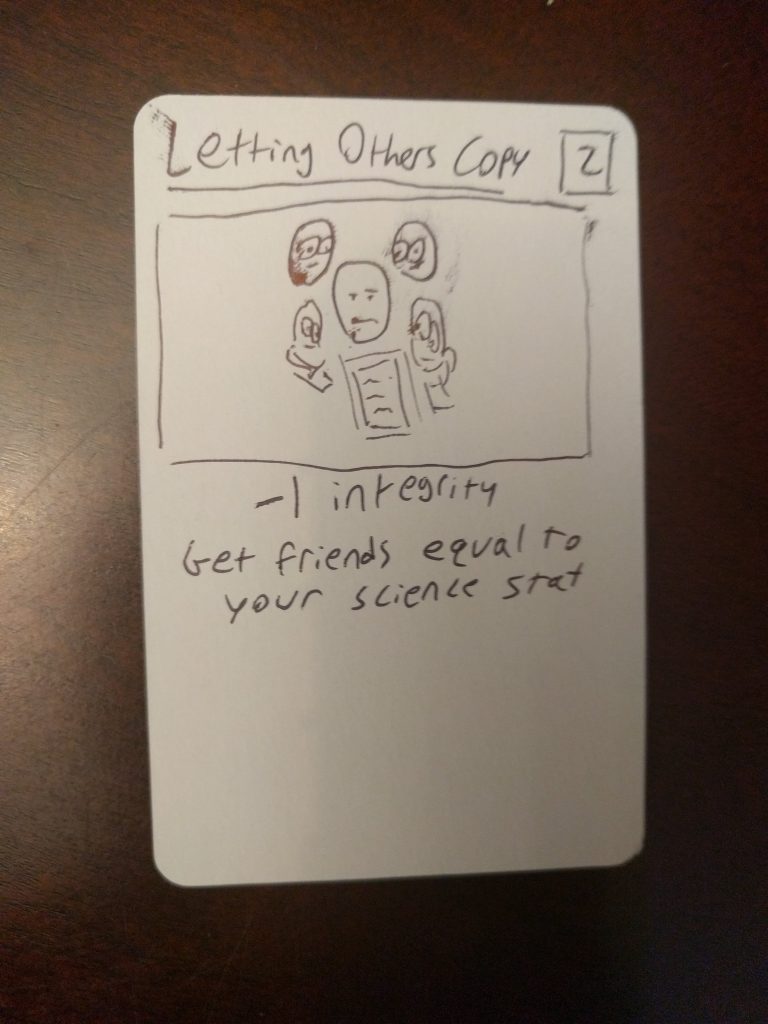 Letting Others Copy 2
-1 integrity
Get friends equal to
your science stat